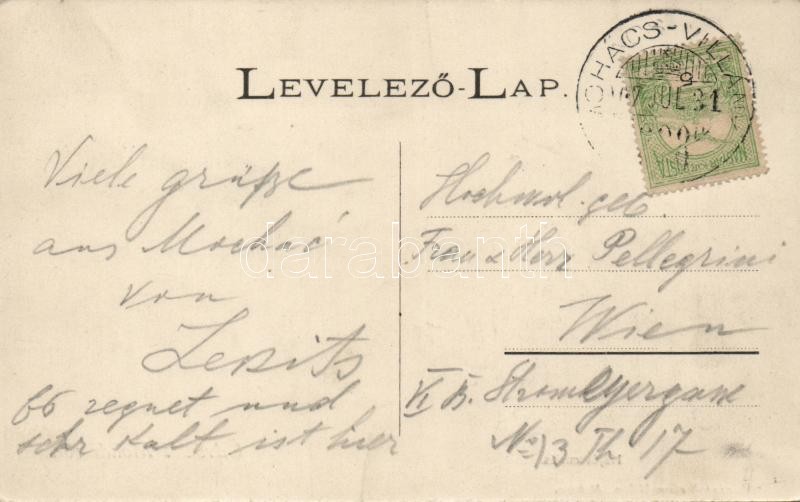 LEVELEZŐ-LAP.
MOHÁCS-VILLÁNY
JUL 31
Viele grüße
aus Mochac
von
Lexits
Es regnet und
sehr kalt ist hier
Hochwol. geb
Frau u Herr Pellegrini
Wien
No 13 Th. 17
darabanth